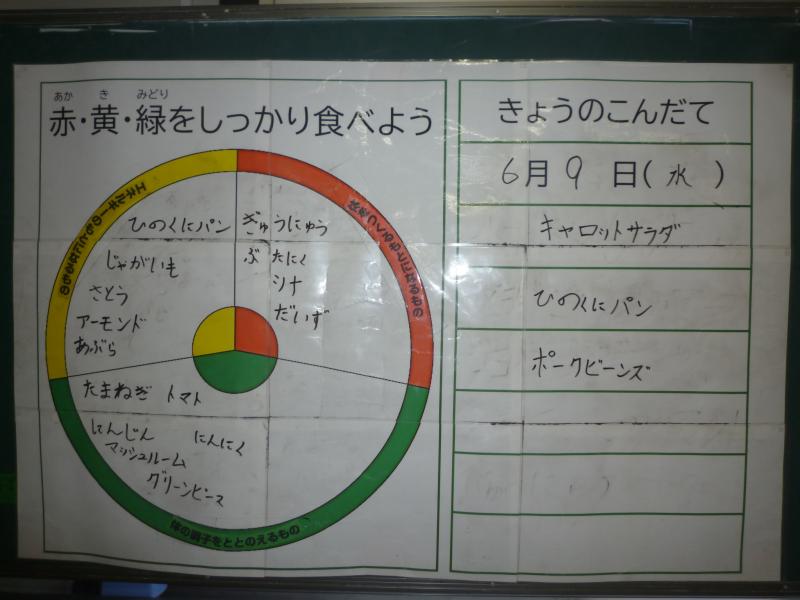 あか き みどり
赤・黄・緑をしっかり食べよう
エネルギーのもとになるもの
体をつくるもとになるもの
ひのくにパン
じゃがいも
さとう
アーモンド
あぶら
ぎゅうにゅう
ぶたにく
ツナ
だいず
たまねぎ トマト
にんじん にんにく
マッシュルーム
グリーンピース
体の調子をととのえるもの
きょうのこんだて
6月9日(水)
キャロットサラダ
ひのくにパン
ポークビーンズ